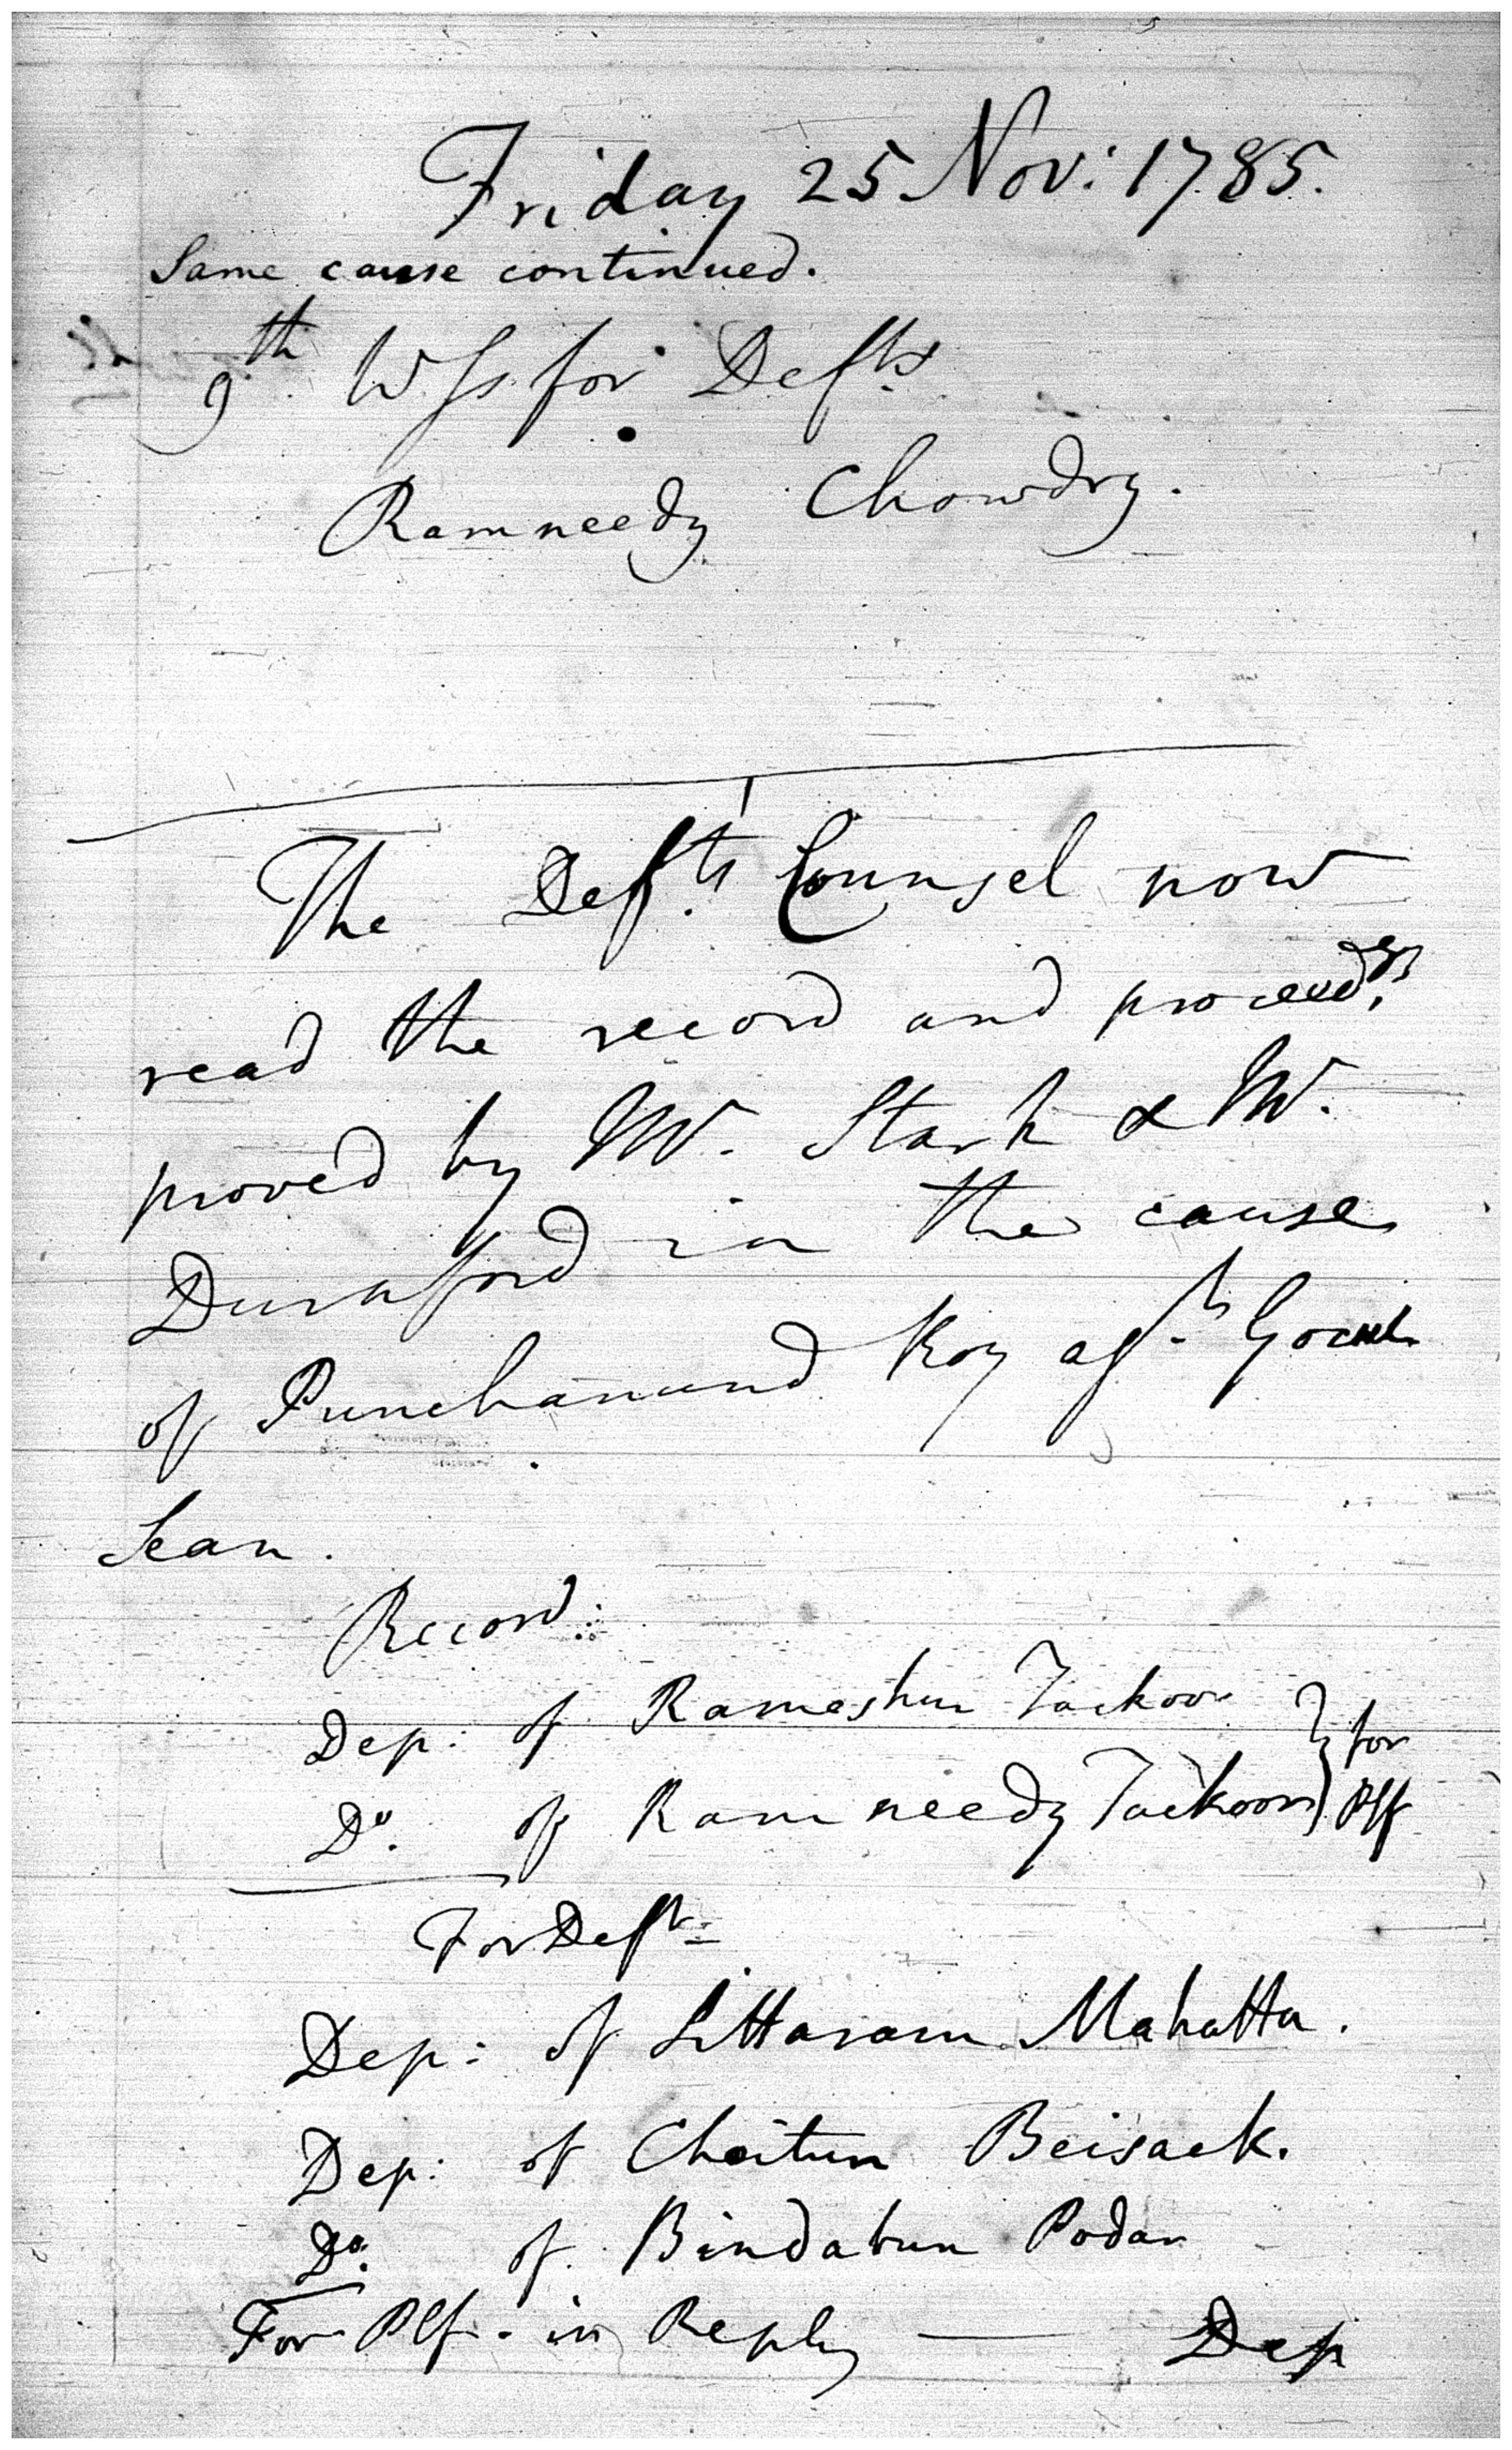 Friday 25 Nov: 1785.
Same cause continued.
9th. Wss for Defts.
Ramneedy Chowdry.
The Defts. Counsel now
read the record and proceedgs.
proved by Mr. Stark & Mr.
Durnford in the cause
of Punchanund Roy agt. Gocul
Sean.
Record:
Dep: of Rameshur Tackoor } for
Do. of Ramneedy Tackoor } Plf
For Deft.
Dep: of Sittaram Mahatta.
Dep: of Choitun Beisack.
Do. of Bindabun Podar
For Plf. in Reply — Dep